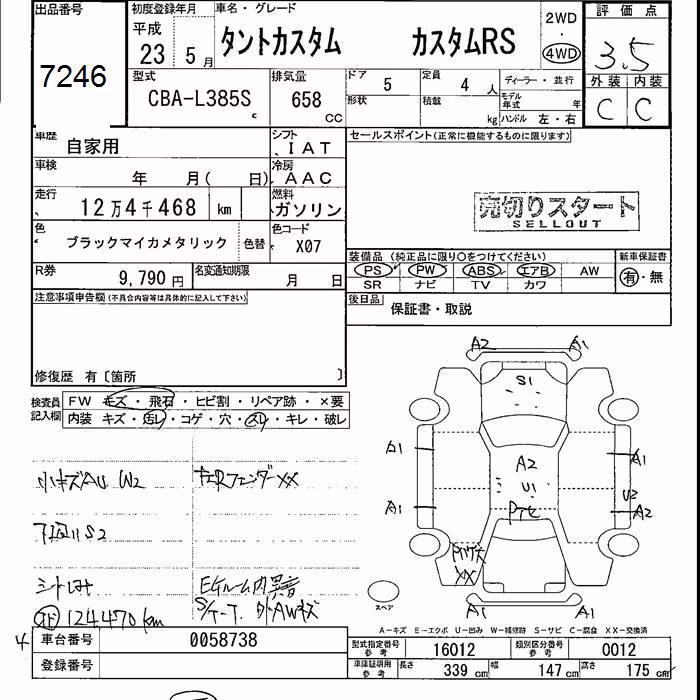 出品番号
7246
初度登録年月
平成
23 5月
車名・グレード
タントカスタム カスタムRS
2WD
・
4WD
評価点
3.5
外装 内装
C C
型式
CBA-L385S
c
排気量
658
CC
ドア
5
定員
4 人
ディーラー・並行
形状
積載
kg
モデル年式 年
ハンドル 左・右
車歴
自家用
シフト
IAT
車検
年 月( 日)
冷房
AAC
走行
12万4千468 km
燃料
ガソリン
色
ブラックマイカメタリック
色替
色コード
X07
R券
9,790円
名変通知期限
月 日
セールスポイント(正常に機能するものに限ります)
売切りスタート
SELLOUT
装備品 (純正品に限り○をつけてください)
新車保証書
PS PW ABS エアB AW
有・無
SR ナビ TV カワ
後日品
保証書・取説
注意事項申告欄(不具合内容等は具体的に記入して下さい)
修復歴 有〔箇所 〕
検査員記入欄
FW キズ・飛石・ヒビ割・リペア跡・×要
内装 キズ・汚レ・コゲ・穴・スレ・キレ・破レ
小キズAU W2
右Rフェンダー××
下回りS2
シートしみ
Eルーム内異音
124,470km
S/ケース 外AWキズ
A2 A1
S1
A1 A1
A2
U1
U2
A1 A2
××
A1 A1
スペア
A-キズ E-エクボ U-凹み W-補修跡 S-サビ C-腐食 ××-交換済
4
車台番号
0058738
登録番号
型式指定番号
参考
16012
類別区分番号
参考
0012
車庫証明用
参考
長さ
339 cm
幅
147 cm
高さ
175 cm